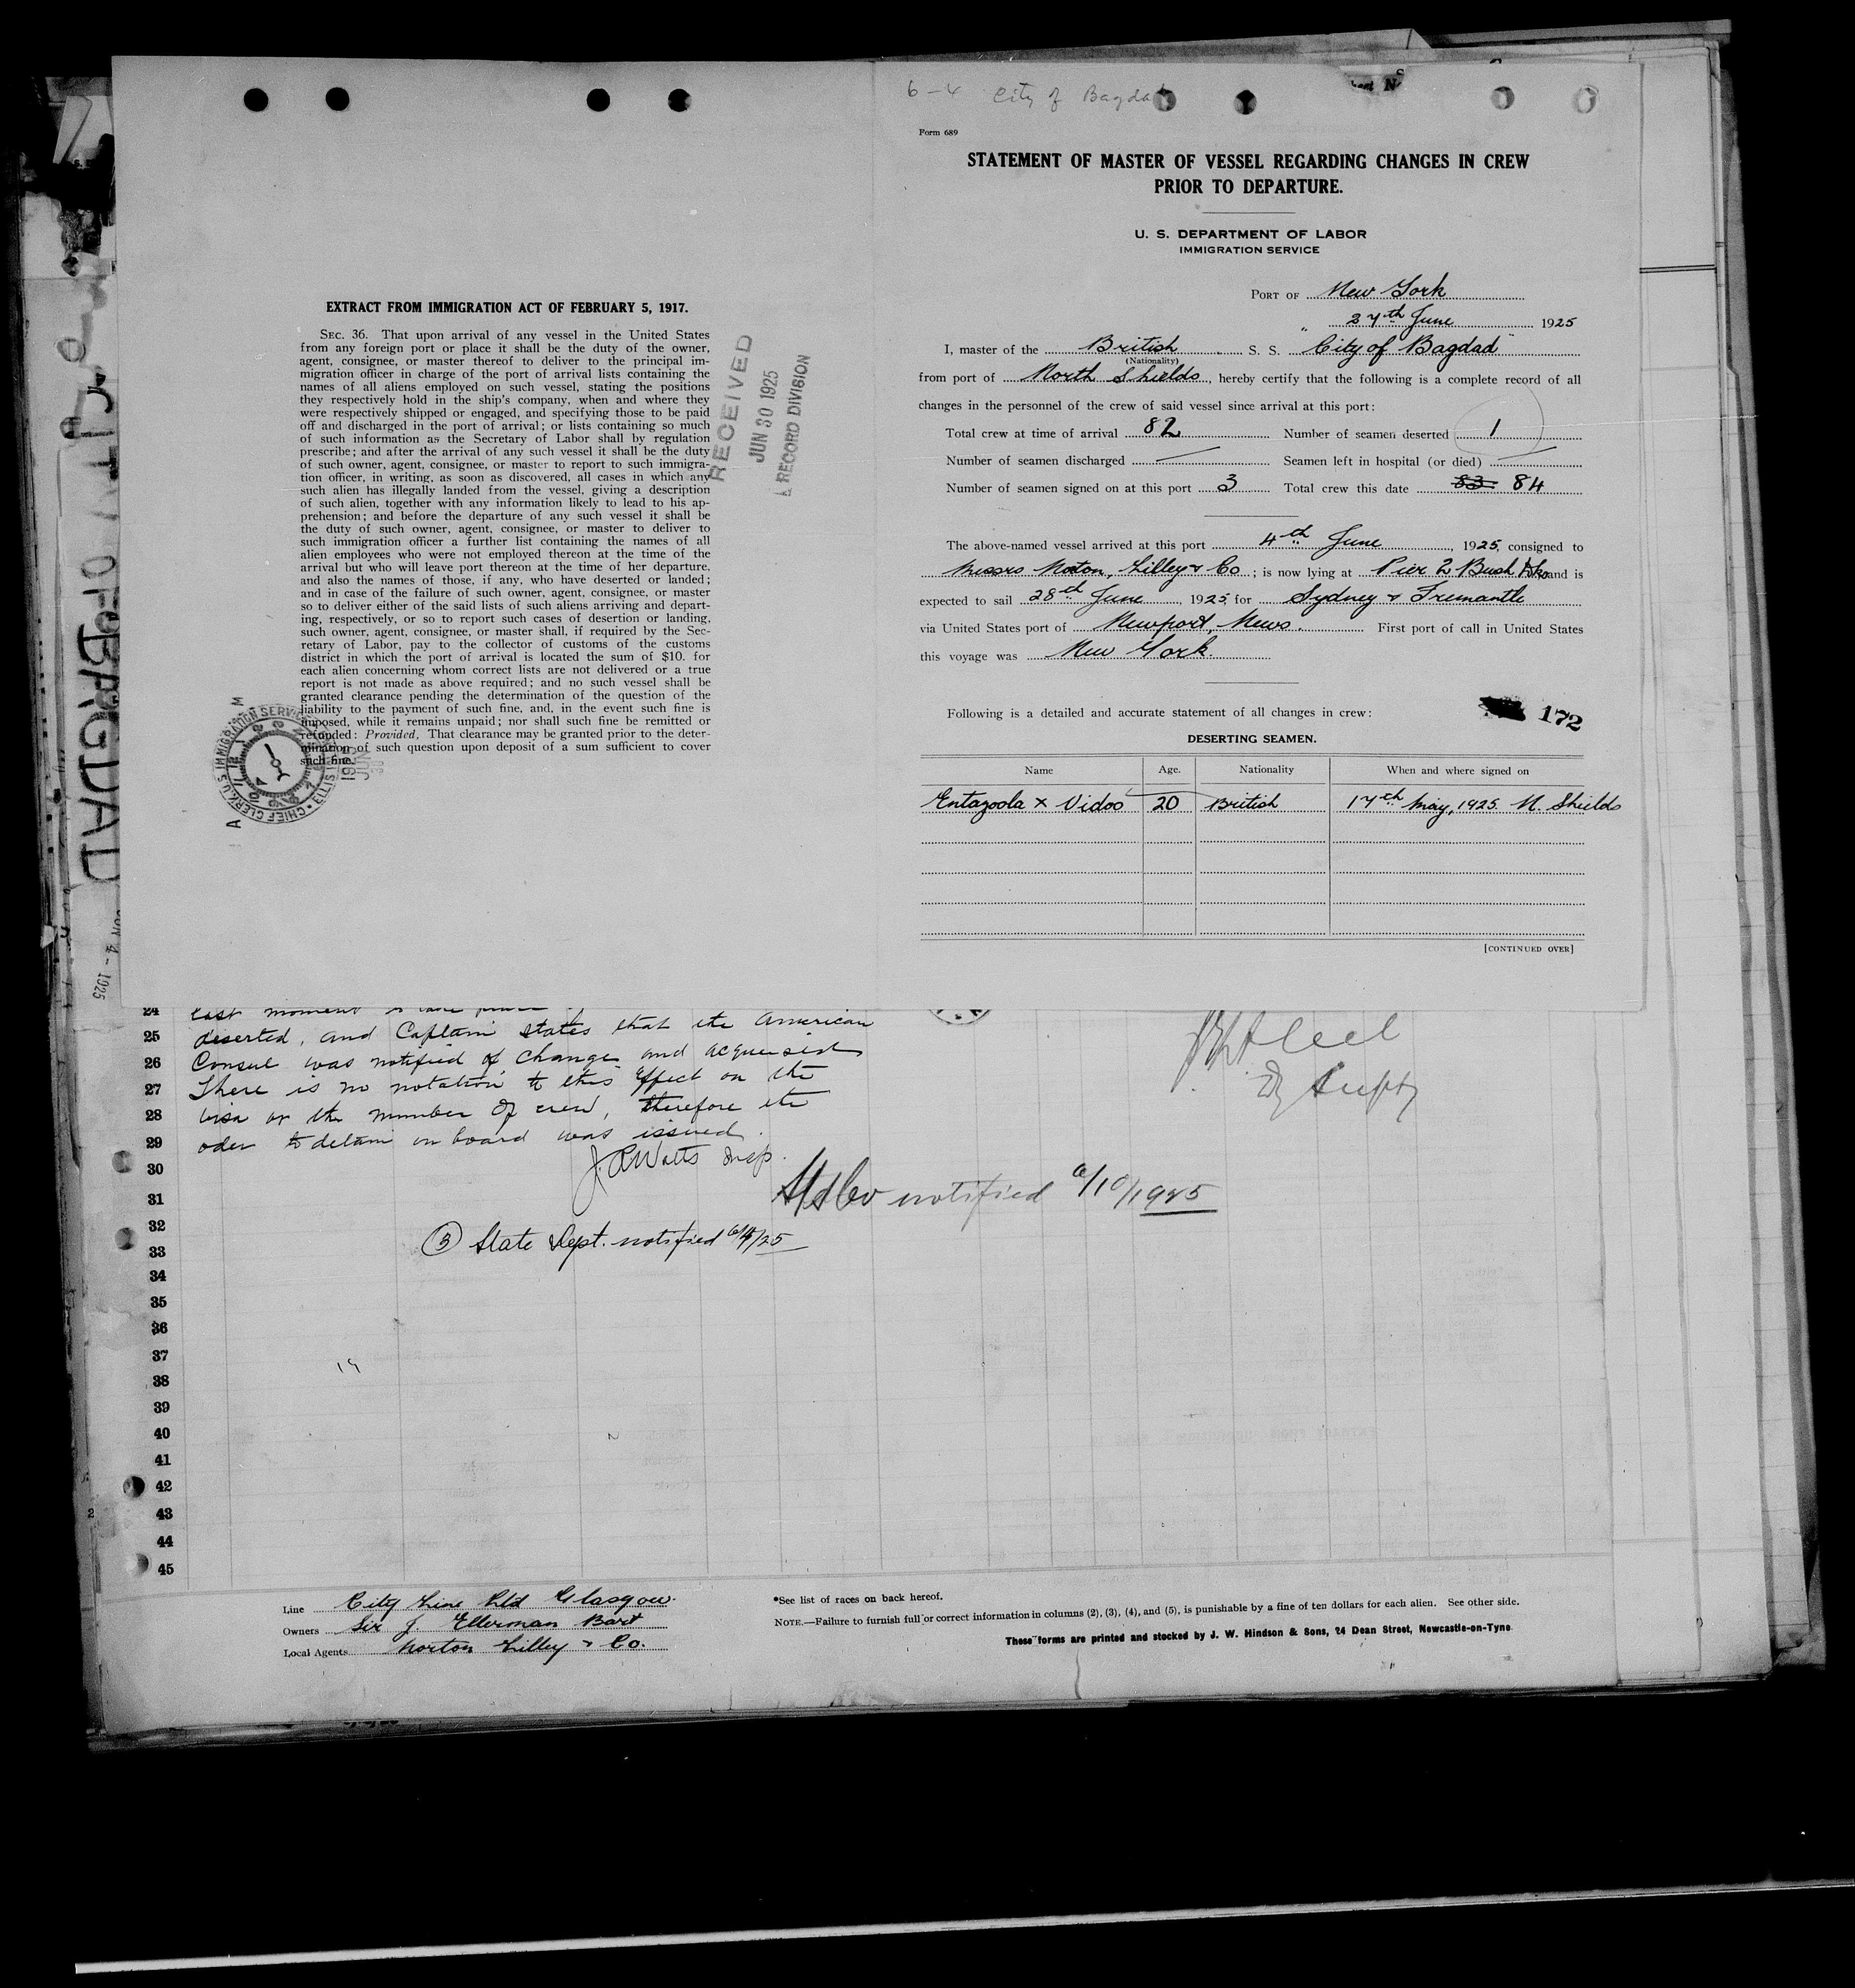 EXTRACT FROM IMMIGRATION ACT OF FEBRUARY 5, 1917.
SEC. 36. That upon arrival of any vessel in the United States
from any foreign port or place it shall be the duty of the owner,
agent, consignee, or master thereof to deliver to the principal im-
migration officer in charge of the port of arrival lists containing the
names of all aliens employed on such vessel, stating the positions
they respectively hold in the ship's company, when and where they
were respectively shipped or engaged, and specifying those to be paid
off and discharged in the port of arrival; or lists containing so much
of such information as the Secretary of Labor shall by regulation
prescribe; and after the arrival of any such vessel it shall be the duty
of such owner, agent, consignee, or master to report to such immigra-
tion officer, in writing, as soon as discovered, all cases in which any
such alien has illegally landed from the vessel, giving a description
of such alien, together with any information likely to lead to his ap-
prehension; and before the departure of any such vessel it shall be
the duty of such owner, agent, consignee, or master to deliver to
such immigration officer a further list containing the names of all
alien employees who were not employed thereon at the time of the
arrival but who will leave port thereon at the time of her departure,
and also the names of those, if any, who have deserted or landed;
and in case of the failure of such owner, agent, consignee, or master
so to deliver either of the said lists of such aliens arriving and depart-
ing, respectively, or so to report such cases of desertion or landing,
such owner, agent, consignee, or master shall, if required by the Sec-
retary of Labor, pay to the collector of customs of the customs
district in which the port of arrival is located the sum of $10. for
each alien concerning whom correct lists are not delivered or a true
report is not made as above required; and no such vessel shall be
granted clearance pending the determination of the question of the
liability to the payment of such fine, and, in the event such fine is
imposed, while it remains unpaid; nor shall such fine be remitted or
refunded: Provided, That clearance may be granted prior to the deter-
mination of such question upon deposit of a sum sufficient to cover
such fine.
RECEIVED
JUN 30 1925
RECORD DIVISION
CHIEF CLERK, U.S. IMMIGRATION SERVICE
CITY OF BAGDAD
JUN 4 - 1925
6-4 City of Bagdad
Form 689
STATEMENT OF MASTER OF VESSEL REGARDING CHANGES IN CREW
PRIOR TO DEPARTURE.
U. S. DEPARTMENT OF LABOR
IMMIGRATION SERVICE
PORT OF New York
27th June 1925
I, master of the British S. S. "City of Bagdad"
(Nationality)
from port of North Shields, hereby certify that the following is a complete record of all
changes in the personnel of the crew of said vessel since arrival at this port:
Total crew at time of arrival 82 Number of seamen deserted 1
Number of seamen discharged — Seamen left in hospital (or died) —
Number of seamen signed on at this port 3 Total crew this date 83 84
The above-named vessel arrived at this port 4th June, 1925, consigned to
Messrs Norton, Lilley & Co; is now lying at Pier 2 Bush and is
expected to sail 28th June, 1925, for Sydney & Fremantle
via United States port of Newport News. First port of call in United States
this voyage was New York.
Following is a detailed and accurate statement of all changes in crew:
172
DESERTING SEAMEN.
Name Age. Nationality When and where signed on
Entazoola x Vidoo 20 British 17th May, 1925. N. Shields
[CONTINUED OVER]
24 last moment
25 deserted, and Captain states that the American
26 Consul was notified of change and acquiesced
27 There is no notation to this effect on the
28 visa or the number of crew, therefore the
29 oder to detain on board was issued.
30 J. R Watts Insp.
31 notified 6/10/1925
32
33 (3) State Dept. notified
34
35
36
37
38
39
40
41
42
43
44
45
Line City Line Ltd Glasgow.
Owners Sir J Ellerman Bart
Local Agents Norton Lilley & Co.
*See list of races on back hereof.
NOTE.—Failure to furnish full or correct information in columns (2), (3), (4), and (5), is punishable by a fine of ten dollars for each alien. See other side.
These forms are printed and stocked by J. W. Hindson & Sons, 24 Dean Street, Newcastle-on-Tyne